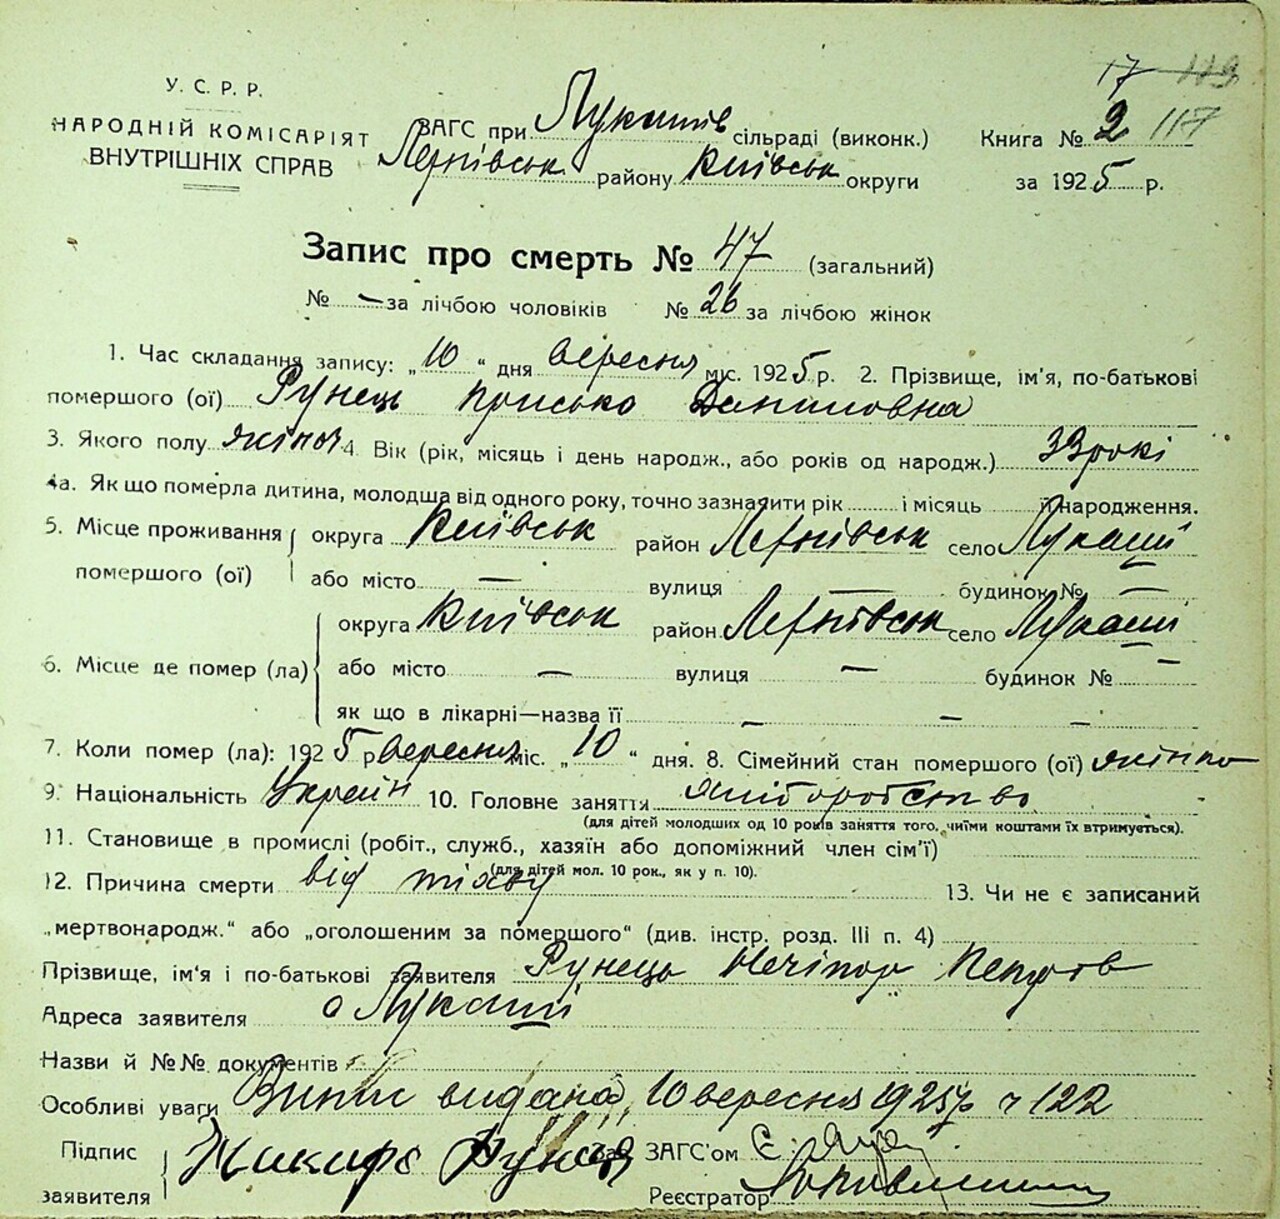 17 119
У. С. Р. Р.
НАРОДНІЙ КОМІСАРІЯТ
ВНУТРІШНІХ СПРАВ
ЗАГС при Лукашів сільраді (виконк.)
районy Київськ округи
Книга № 2 117
за 1925 р.
Запис про смерть № 47 (загальний)
№ — за лічбою чоловіків № 26 за лічбою жінок
1. Час складання запису: „10“ дня вересня міс. 1925 р. 2. Прізвище, ім'я, по-батькові
помершого (ої) Рунець Присько Даниловна
3. Якого полу жіноч 4. Вік (рік, місяць і день народж., або років од народж.) 33 рокі
4а. Як що померла дитина, молодша від одного року, точно зазначити рік і місяць її народження.
5. Місце проживання помершого (ої) округа Київськ район село Лукаші
або місто — вулиця — будинок № —
6. Місце де помер (ла) округа Київськ район село Лукаші
або місто — вулиця — будинок № —
як що в лікарні—назва її — — —
7. Коли помер (ла): 1925 р вересня міс. „10“ дня. 8. Сімейний стан помершого (ої)
9. Національність Україн 10. Головне заняття
(для дітей молодших од 10 років заняття того, чиїми коштами їх втримується).
11. Становище в промислі (робіт., служб., хазяїн або допоміжний член сім'ї)
(для дітей мол. 10 рок., як у п. 10).
12. Причина смерти від 13. Чи не є записаний
„мертвонародж.“ або „оголошеним за помершого“ (див. інстр. розд. III п. 4)
Прізвище, ім'я і по-батькові заявителя Рунець Нечіпор Петров
Адреса заявителя с Лукаші
Назви й №№ документів
Особливі уваги Випис видана 10 вересня 1925 р ч 122
Підпис заявителя Рунець
Зав. ЗАГС'ом
Реєстратор